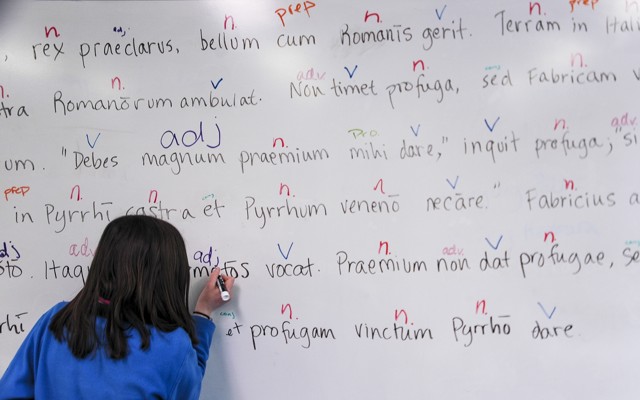 n. adj. n. prep n. V n. prep
, rex praeclarus, bellum cum Romanīs gerit. Terram in
n. n. V adv V n. conj n.
tra Romanōrum ambulat. Non timet profuga, sed Fabricam
V adj n. pro V V n. adv
um. "Debes magnum praemium mihi dare," inquit profuga; "si
prep n. n. conj n. n V n.
in Pyrrhī castra et Pyrrhum venenō necāre." Fabricius a
dj adv adj V n. adv V n.
sto. vocat. Praemium non dat profugae, se
conj n. n. n. V
rhī et profugam vinctum Pyrrhō dare.